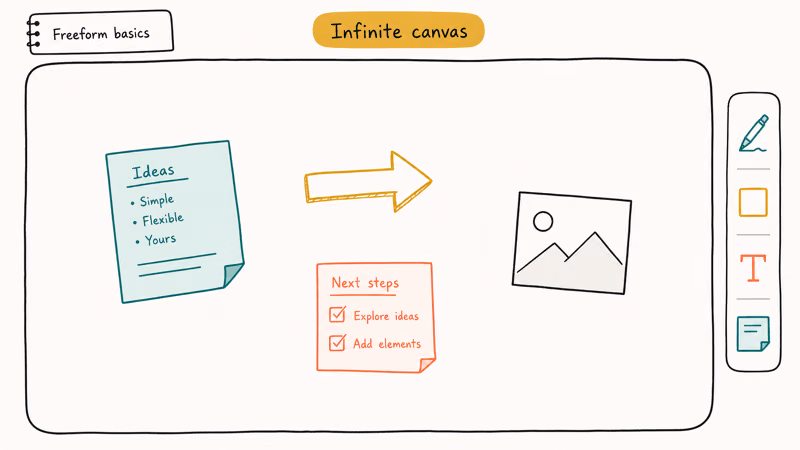 Freeform basics
Infinite canvas
Ideas
• Simple
• Flexible
• Yours
Next steps
Explore ideas
Add elements
T